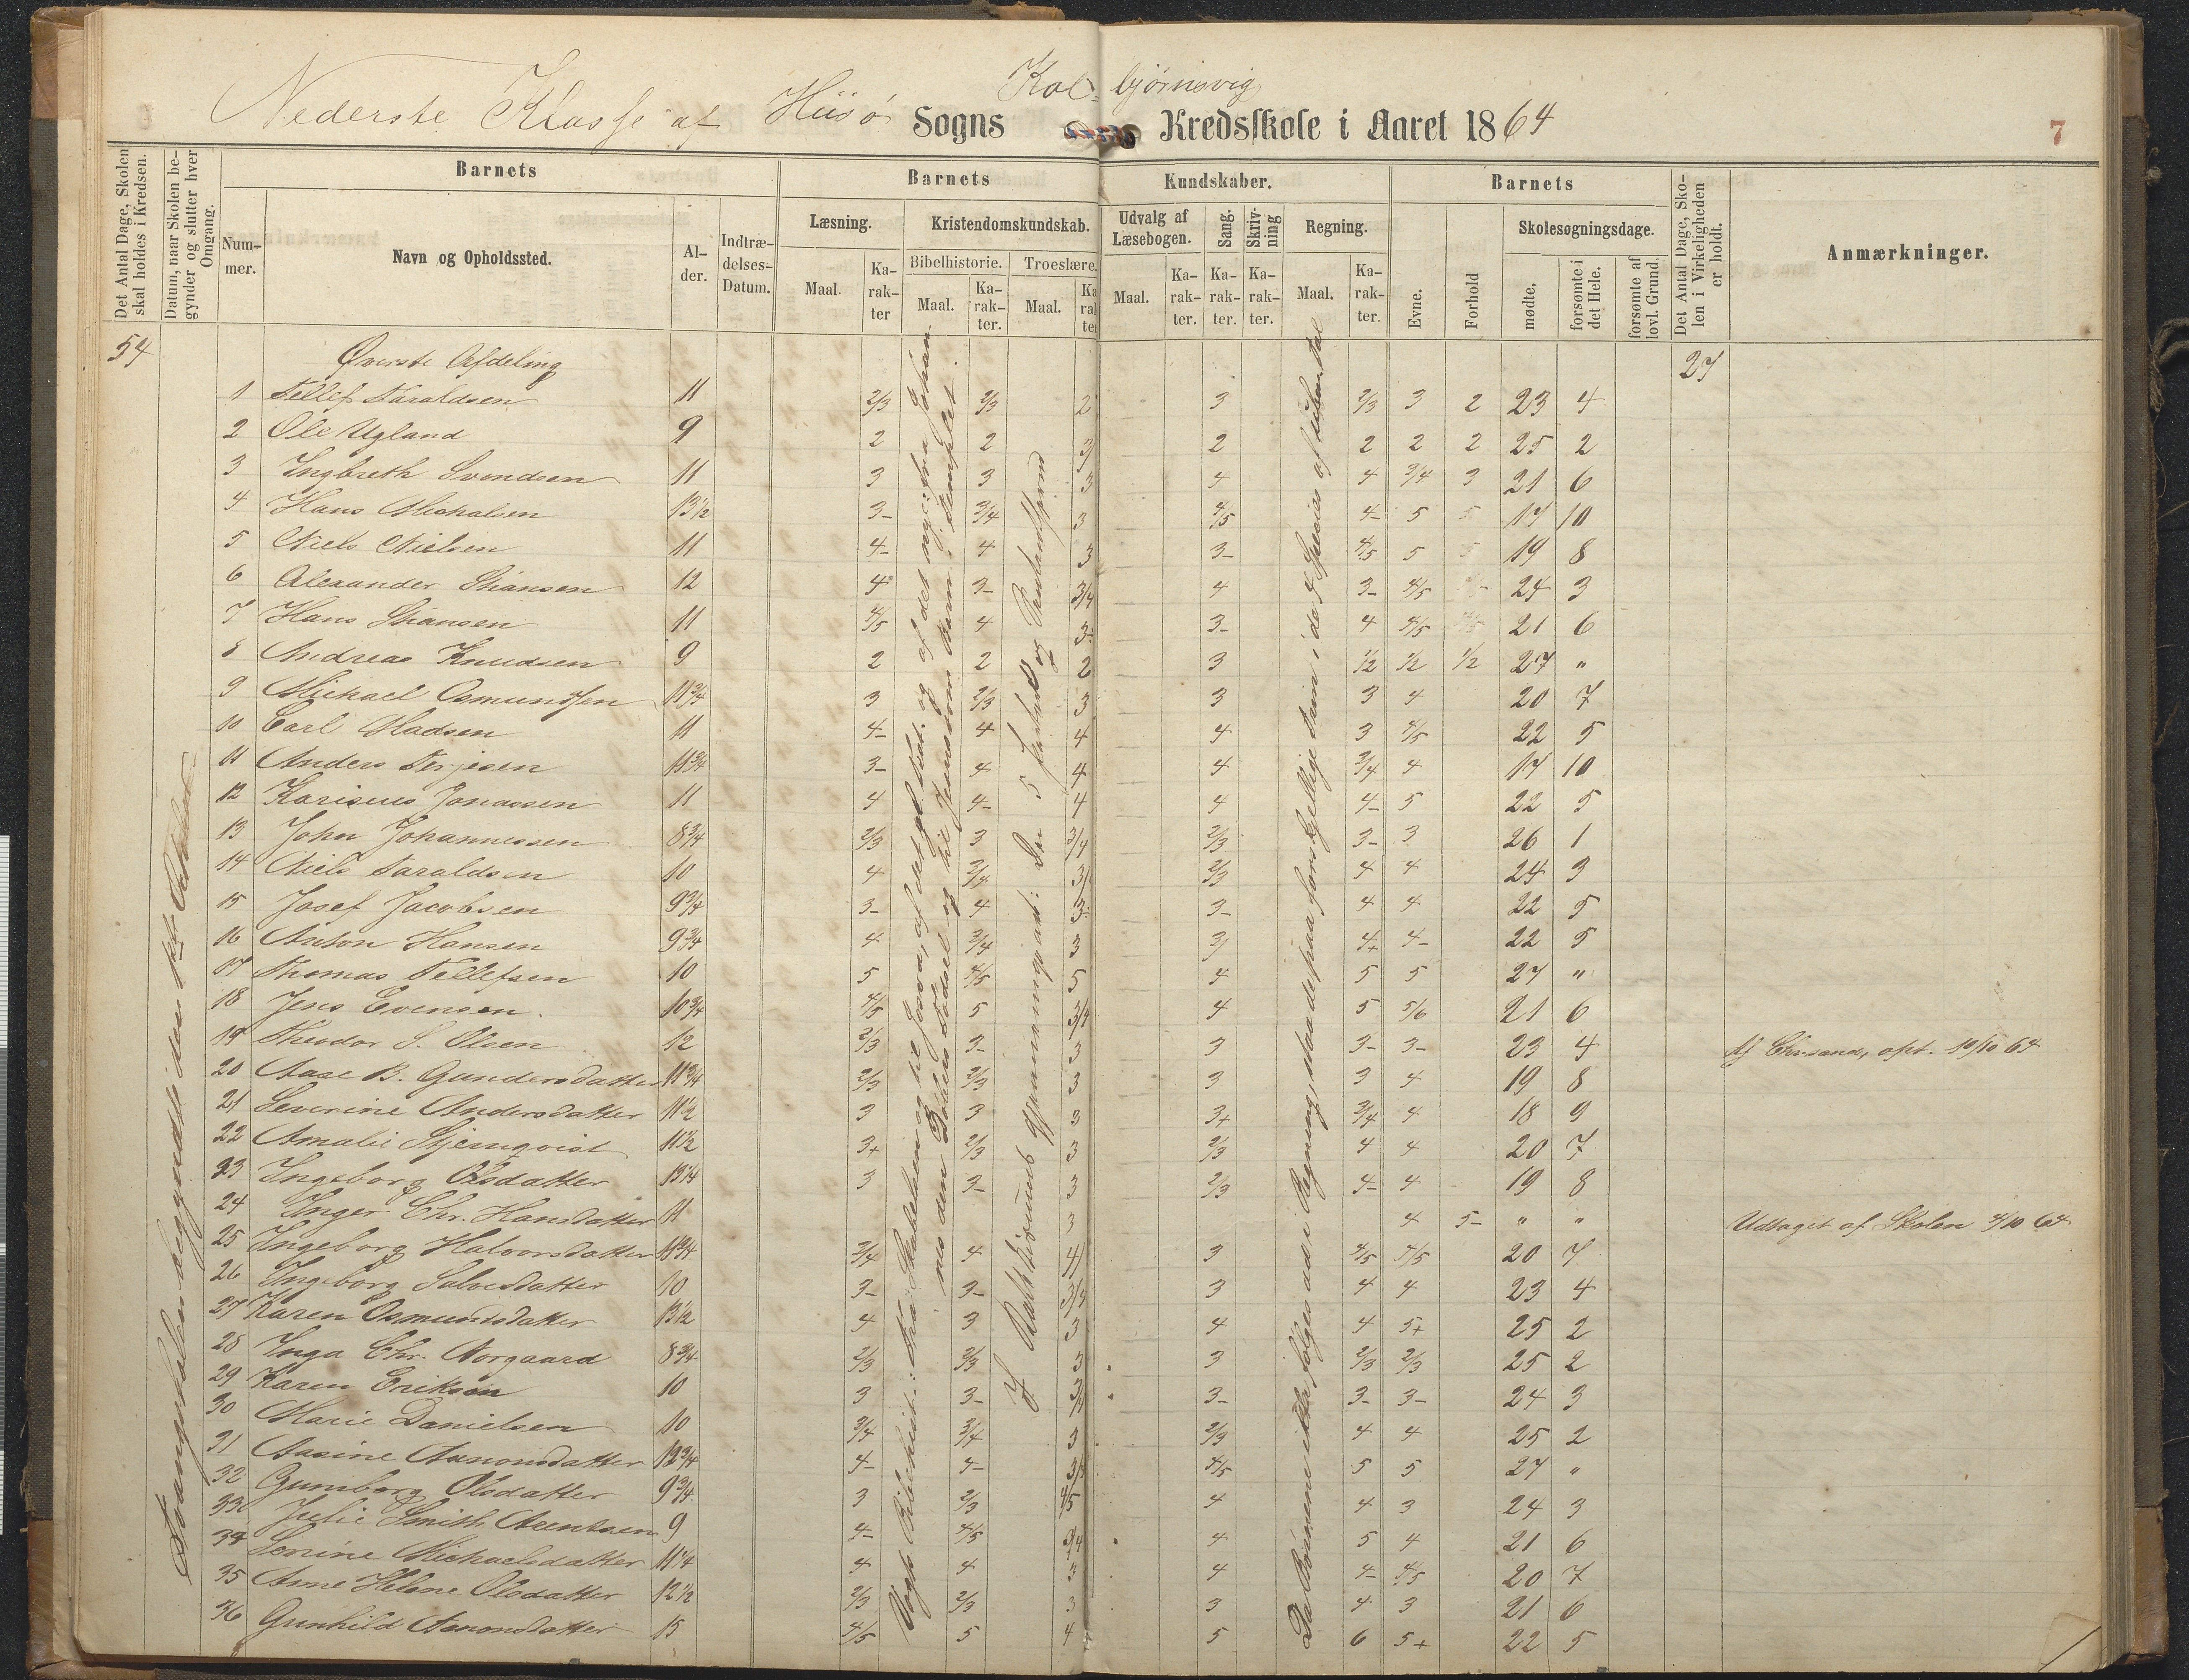 Nederste Klasse af Hisø Sogns Kolbjørnsvig Kredsskole i Aaret 1864
7
Det Antal Dage, Skolen skal holdes i Kredsen.
Datum, naar Skolen begynder og slutter hver Omgang.
Barnets
Nummer.
Navn og Opholdssted.
Alder.
Indtrædelses-Datum.
Barnets Kundskaber.
Læsning.
Maal.
Karakter
Kristendomskundskab.
Bibelhistorie.
Maal.
Karakter.
Troeslære.
Maal.
Karakter
Udvalg af Læsebogen.
Maal.
Karakter.
Sang.
Karakter.
Skrivning
Karakter.
Regning.
Maal.
Karakter.
Barnets
Evne.
Forhold
Skolesøgningsdage.
mødte.
forsømte i det Hele.
forsømte af lovl. Grund.
Det Antal Dage, Skolen i Virkeligheden er holdt.
Anmærkninger.
54 Øverste Afdeling 27
1 Tellef Taraldsen 11 2/3 2/3 2 3 2/3 3 2 23 4
2 Ole Ugland 9 2 2 3 2 2 2 2 25 2
3 Ingbreth Svendsen 11 3 3 3 4 4 3/4 3 21 6
4 Hans Michalsen 13½ 3- 3/4 3 4/5 4- 5 5 17 10
5 Niels Nielsen 11 4- 4 3 3- 4/5 5 5 19 8
6 Alexander 12 4 3- 3/4 4 3- 4/5 24 3
7 Hans 11 4/5 4 3- 3- 4 4/5 4/5 21 6
8 Andreas Knudsen 9 2 2 2 3 1/2 1/2 1/2 27 "
9 Michael Osmundsen 11¾ 3 2/3 3 3 3 4 20 7
10 Carl Madsen 11 4- 4 4 4 3 4/5 22 5
11 Anders Terjesen 11¾ 3- 4 4 4 3/4 4 17 10
12 Karinus Jonassen 11 4 4- 4 4 4- 5 22 5
13 John Johannessen 8¾ 2/3 3 3/4 2/3 3- 3 26 1
14 Niels Taraldsen 10 4 3/4 3/ 2/3 4 4 24 3
15 Josef Jacobsen 9¾ 3- 4 3- 3- 4 4 22 5
16 Anton Hansen 9¾ 4 3/4 3 3/ 4+ 4- 22 5
17 Thomas Tellefsen 10 5 4/5 5 4 5 5 27 "
18 Jens Evensen. 10¾ 4/5 5 3/4 4 5 5/6 21 6
19 Theodor S. Olsen 12 2/3 3- 3 3 3- 3- 23 4 opt. 10/10 64
20 Aase B. Gundersdatter 11¾ 2/3 2/3 3 3 3 4 19 8
21 Severine Andersdatter 11½ 3 3 3 3+ 3/4 4 18 9
22 Amalie Stjernqvist 11½ 3+ 2/3 3 2/3 4 4 20 7
23 Ingeborg Olsdatter 13¼ 3 3- 3 2/3 4- 4 19 8
24 Inger Chr. Hansdatter 11 3 4 5- " " Udtaget af Skolen 4/10 64
25 Ingeborg Halvorsdatter 11¾ 3/4 4 4/ 3 4/5 4/5 20 7
26 Ingeborg Salvesdatter 10 3- 3- 3/4 3 4 4 23 4
27 Karen Osmundsdatter 13½ 4 3 3 4 4 5+ 25 2
28 Inga Chr. Norgaard 8¾ 2/3 2/3 3 3 2/3 2/3 25 2
29 Karen Eriksen 10 3 3- 3/4 3- 3- 3- 24 3
30 Marie Danielsen 10 3/4 3/4 3 2/3 4 4 25 2
31 Aasine Aanonsdatter 12¾ 4- 4- 3/ 4/5 5 5 27 "
32 Gunborg Olsdatter 9¾ 3 2/3 4/5 4 4 3 24 3
33 Julie Smith Arentsen 9 4- 4/5 3/4 4 5 4 21 6
34 Michaelsdatter 11¼ 4 4 3 4 4- 4/5 20 7
35 Anne Helene Olsdatter 12½ 2/3 2/3 3 3 4 3 21 6
36 Gunhild Aanonsdatter 15 4/5 5 4 5 6 5+ 22 5
Omgangsskolen begyndte den 1ste October
Vogts Bibelhist.: Fra Skabelsen og til Josva, af det gl. Test. og af det nye: fra Johannes den Døbers Fødsel og til Jesus som Barn i Templet.
I Katekismus gjennemgaaet: De 5 Parter
Da Børnene ikke følges ad i Regning, staa de paa forskjellige Trin i de 4 Species af